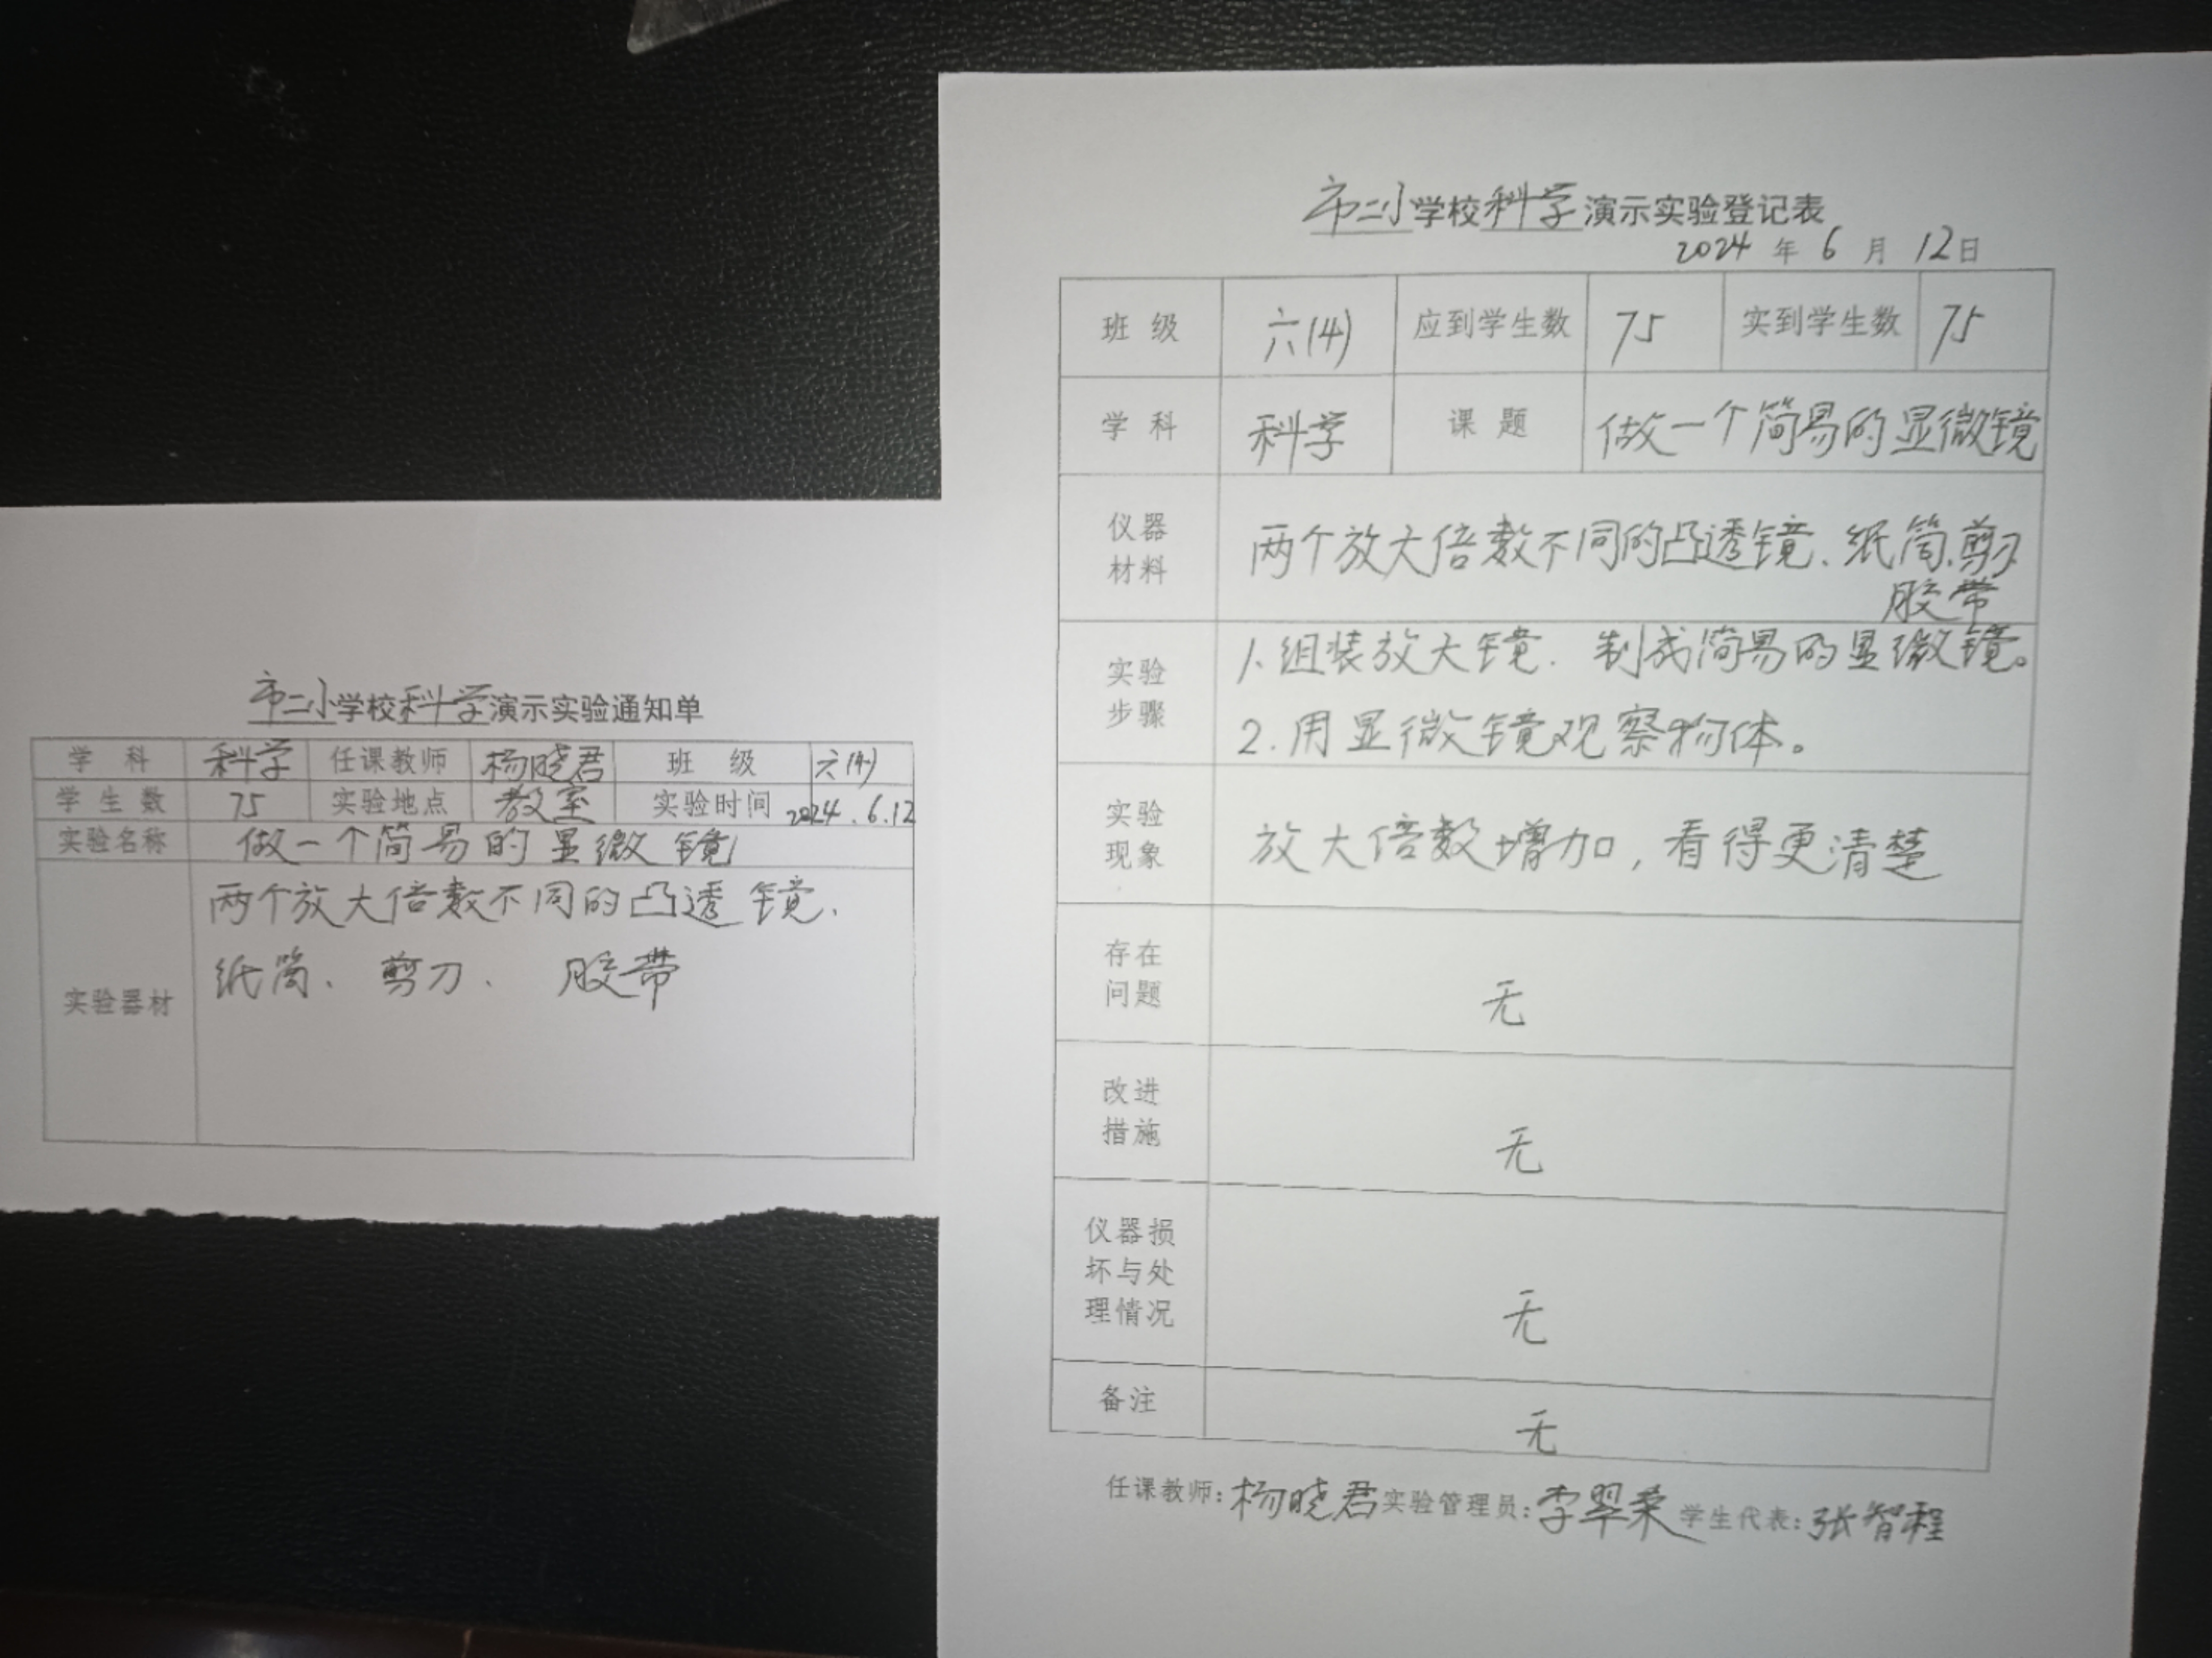 市二小学校科学演示实验通知单
学科 科学 任课教师 杨晓君 班级 六(4)
学生数 75 实验地点 教室 实验时间 2024.6.12
实验名称 做一个简易的显微镜
实验器材 两个放大倍数不同的凸透镜、
纸筒、剪刀、胶带
市二小学校科学演示实验登记表
2024年6月12日
班级 六(4) 应到学生数 75 实到学生数 75
学科 科学 课题 做一个简易的显微镜
仪器
材料
两个放大倍数不同的凸透镜、纸筒、剪刀
胶带
实验
步骤
1、组装放大镜、制成简易的显微镜。
2.用显微镜观察物体。
实验
现象
放大倍数增加,看得更清楚
存在
问题
无
改进
措施
无
仪器损
坏与处
理情况
无
备注 无
任课教师:杨晓君 实验管理员:李翠柔 学生代表:张智程